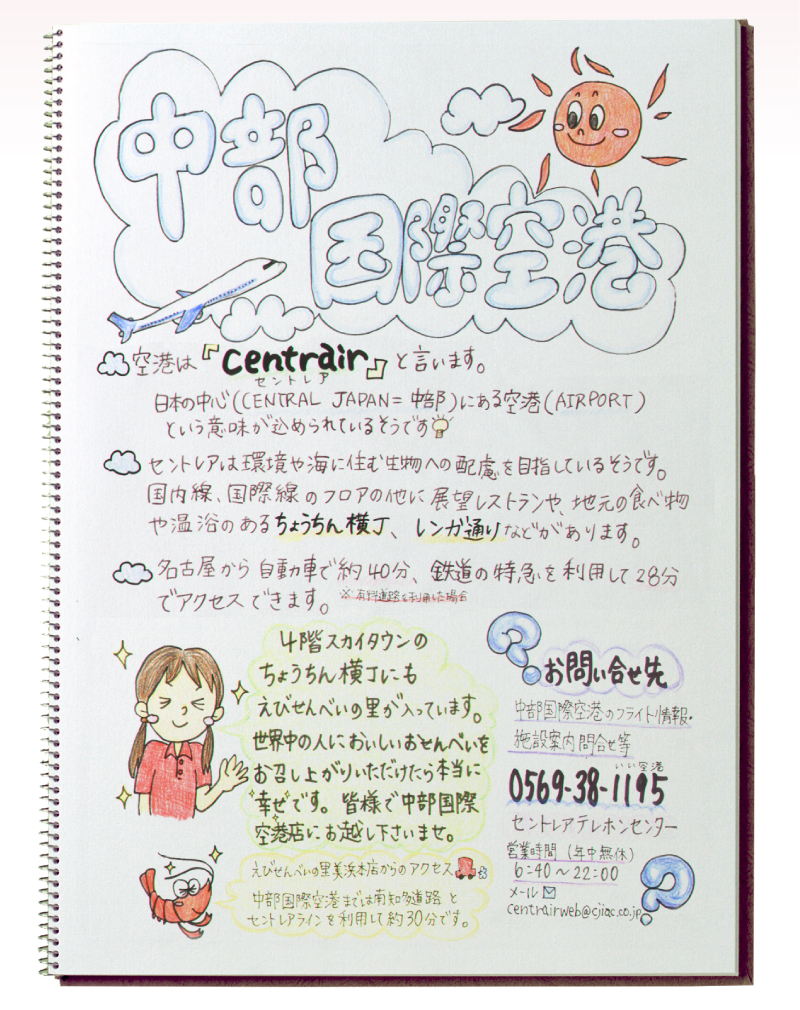 中部
国際空港
空港は『centrair』と言います。
セントレア
日本の中心(CENTRAL JAPAN=中部)にある空港(AIRPORT)
という意味が込められているそうです
セントレアは環境や海に住む生物への配慮を目指しているそうです。
国内線、国際線のフロアの他に展望レストランや、地元の食べ物
や温浴のあるちょうちん横丁、レンガ通りなどがあります。
名古屋から自動車で約40分、鉄道の特急を利用して28分
でアクセスできます。
※有料道路を利用した場合
4階スカイタウンの
ちょうちん横丁にも
えびせんべいの里が入っています。
世界中の人においしいおせんべいを
お召し上がりいただけたら本当に
幸せです。皆様で中部国際
空港店にお越し下さいませ。
えびせんべいの里美浜本店からのアクセス
中部国際空港までは南知多道路と
セントレアラインを利用して約30分です。
お問い合せ先
中部国際空港のフライト情報・
施設案内問合せ等
いい空港
0569-38-1195
セントレアテレホンセンター
営業時間(年中無休)
6:40~22:00
メール
centrairweb@cjiac.co.jp